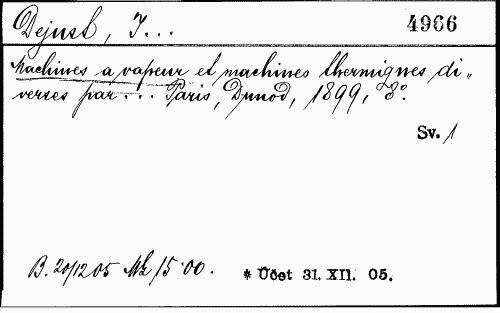 Dejust, J... 4966
Machines a vapeur et machines thermiques di-
verses par... Paris, Dunod, 1899, 8°.
Sv. 1
B. 20/12 05 Mk 15·00. * Účet 31. XII. 05.